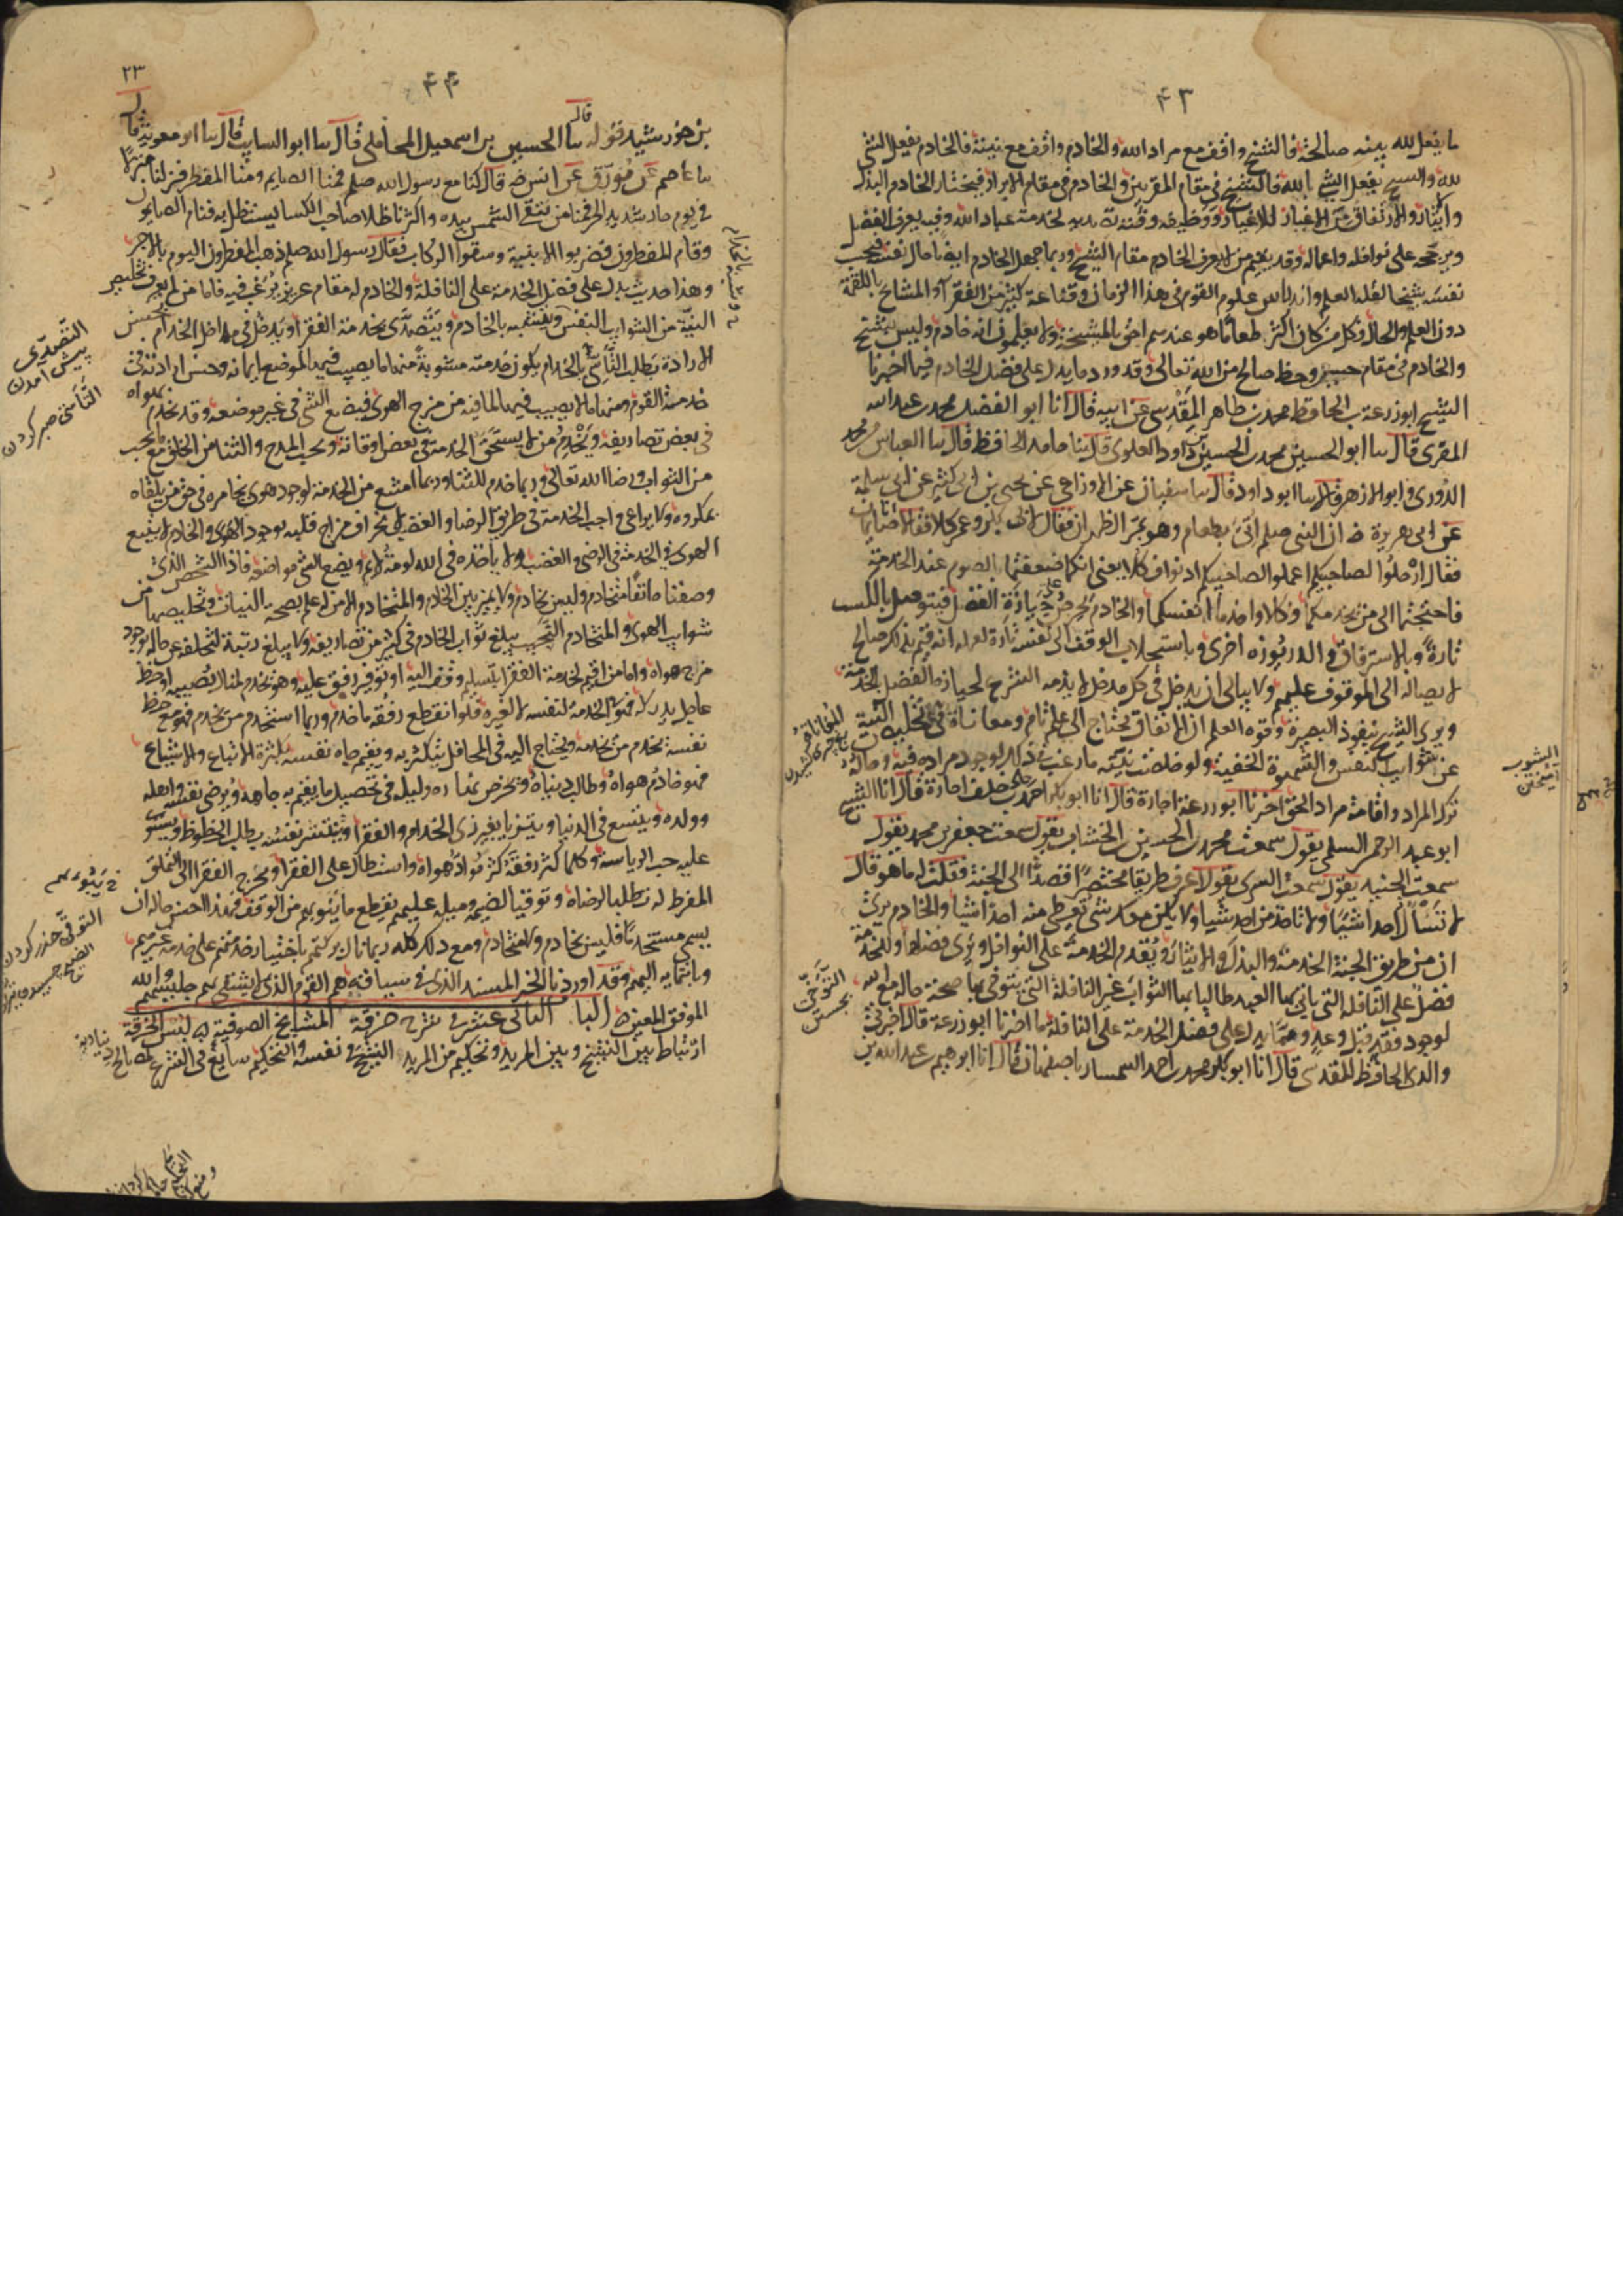 ۴۳
ما يفعل لله بنية صالحة فالشيخ واقف مع مراد الله والخادم واقف مع نيته فالخادم يفعل الشئ
لله والشيخ يفعل الشئ بالله فالشيخ في مقام المقربين والخادم في مقام الابرار فيختار الخادم البذل
والايثار والارتفاق من الاغيار للاغيار ووظيفة وقته لخدمة عباد الله وفيه يعرف الفضل
ويرجحه على نوافله واعماله وقد يقيم من لا يعرف الخادم مقام الشيخ وربما جهل الخادم ايضا حال نفسه فيحسب
نفسه شيخا لقلة العلم واندراس علوم القوم في هذا الزمان وقناعة كثير من الفقرا من المشايخ باللقمة
دون العلم والحال فكل من كان اكثر طعاما هو عندهم احق بالمشيخة ولا يعلمون انه خادم وليس بشيخ
والخادم في مقام حسن وحظ صالح من الله تعالى وقد ورد ما يدل على فضل الخادم فيما اخبرنا
الشيخ ابو زرعة بن الحافظ محمد بن طاهر المقدسي عن ابيه قال انا ابو الفضل محمد بن عبد الله
المقرى قال سا ابو الحسين محمد بن الحسين بن داود العلوى قال سا حامد الحافظ قال سا العباس بن محمد
الدورى وابو الازهر قالا سا ابو داود قال سا سفيان عن الاوزاعي عن يحيى بن ابي كثير عن ابي سلمة
عن ابي هريرة رض ان النبي صلعم اتى بطعام وهو بمر الظهران فقال لابي بكر وعمر كلا فقالا انا صايمان
فقال ارحلوا لصاحبيكم اعملوا لصاحبيكم ادنوا فكلا يعني انكما ضعفتما بالصوم عن الخدمة
فاحتجتما الى من يخدمكما فكلا واخدما انفسكما والخادم يحرص على حيازة الفضل فيتوصل بالكسب
تارة وبالاسترفاق والدريوزه اخرى وباستجلاب الوقف الى نفسه تارة لعلمه انه قيم بذلك صالح
لايصاله الى الموقوف عليهم ولا يبالى ان يدخل في كل مدخل لا يذمه الشرع لحيازة الفضل بالخدمة
ويرى الشيخ بنفوذ البصيرة وقوة العلم ان الانفاق يحتاج الى علم تام ومعاناة في تخليص النية
عن شوايب النفس والشهوة الخفية ولو خلصت نيته ما رغب في ذلك لوجود مراده فيه وحاله
ترك المراد واقامة مراد الحق اخبرنا ابو زرعة اجازة قال انا ابو بكر احمد بن على بن خلف اجازة قال انا الشيخ
ابو عبد الرحمن السلمى يقول سمعت محمد بن الحسين بن الخشاب يقول سمعت جعفر بن محمد يقول
سمعت الجنيد يقول سمعت السرى يقول اعرف طريقا مختصرا قصدا الى الجنة فقلت له ما هو قال
لا تسأل احدا شيئا ولا تاخذ من احد شيا ولا يكن معك شئ تعطى منه احدا شيا والخادم يرى
ان من طريق الجنة الخدمة والبذل والايثار ويقدم الخدمة على النوافل ويرى فضلها وللخدمة
فضل على النافلة التي ياتي بها العبد طالبا بها الثواب غير النافلة التي يتوخى بها صحة حاله مع الله
لوجود نقد قبل وعد ومما يدل على فضل الخدمة على النافلة ما اخبرنا ابو زرعة قال اخبرني
والدى الحافظ المقدسي قال انا ابو بكر محمد بن احمد السمسار باصفهان قال انا ابرهيم بن عبد الله بن
الشوب
آميختن
التوخى
بجستن
۴۴
۲۳
بن خورشيد قوله قال سا الحسين بن اسمعيل المحاملى قال سا ابو السايب قال سا ابو معوية قال
سا عاصم عن مورق عن انس رض قال كنا مع رسول الله صلعم فمنا الصايم ومنا المفطر فنزلنا منزلا
في يوم حار شديد الحر فمنا من يتقى الشمس بيده واكثرنا ظلا صاحب الكسا يستظل به فنام الصايمون
وقام المفطرون فضربوا الابنية وسقوا الركاب فقال رسول الله صلعم ذهب المفطرون اليوم بالاجر
وهذا حديث يدل على فضل الخدمة على النافلة والخادم له مقام عزيز يرغب فيه فاما من لم يعرف تخليص
النية من شوايب النفس ويتشبه بالخادم ويتصدى لخدمة الفقرا ويدخل في مداخل الخدام بحسن
الارادة بطلب التأسى بالخدام يكون خدمته مشوبة منها ما يصيب فيها لموضع ايمانه وحسن ارادته في
خدمة القوم ومنها ما لا يصيب فيها لما فيه من مزج الهوى فيضع الشئ في غير موضعه وقد يخدم بهواه
في بعض تصاريفه ويخدم من لا يستحق الخدمة في بعض اوقاته ويحب المدح والثنا من الخلق مع ما يحب
من الثواب ورضا الله تعالى وربما خدم للثنا وربما امتنع من الخدمة لوجود هوى يخامره في حق من يلقاه
بمكروه ولا يراعى واجب الخدمة في طريق الرضا والغضب لانحراف مزاج قلبه بوجود الهوى والخادم لا يتبع
الهوى في الخدمة في الرضى والغضب ولا ياخذه في الله لومة لائم ويضع الشئ مواضعه فاذا الشخص الذى
وصفناه انفا متخادم وليس بخادم ولا يميز بين الخادم والمتخادم الا من له علم بصحة النيات وتخليصها من
شوايب الهوى والمتخادم النجيب يبلغ ثواب الخادم في كثير من تصاريفه ولا يبلغ رتبته لتخلفه عن حاله لوجود
مزج هواه واما من اقيم لخدمة الفقرا بتسليم وقف اليه او توفير رفق عليه وهو يخدم لمنال يصيبه او حظ
عاجل يدركه فهو في الخدمة لنفسه لا لغيره فلو انقطع رفقه ما خدم وربما استخدم من يخدم فهو مع حظ
نفسه يخدم من يخدمه ويحتاج اليه في المحافل يتكثر به ويقيم جاه نفسه بكثرة الاتباع والاشياع
فهو خادم هواه وطالب دنياه ويحرص نهاره وليله في تحصيل ما يقيم به جاهه ويرضى نفسه واهله
وولده ويتسع في الدنيا ويتزيا بغير زى الخدام والفقرا وتنتشر نفسه بطلب الحظوظ ويستولى
عليه حب الرياسة وكلما كثر رفقه كثر مواد هواه واستطال على الفقرا ويحوج الفقرا الى التملق
المفرط له تطلبا لرضاه وتوقيا لضيمه وميله عليهم بقطع ما ينوبهم من الوقف فهذا احسن حاله ان
يسمى مستخدما فليس بخادم ولا متخادم ومع ذلك كله ربما نال بركتهم باختياره خدمتهم على خدمة غيرهم
وبانتمايه اليهم وقد اوردنا الخبر المسند الذى في سياقه هم القوم الذى لا يشقى بهم جليسهم والله
الموفق المعين الباب الثانى عشر في شرح خرقة المشايخ الصوفية لبس الخرقة
ارتباط بين الشيخ وبين المريد وتحكيم من المريد الشيخ في نفسه والتحكيم سايغ في الشرع لمصالح دنياوية
التصدى
پيش آمدن
التأسى صبر كردن
ينوبهم
التوقى حذر كردن